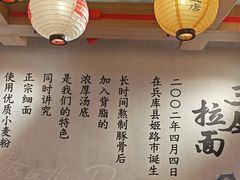 店
三
拉面
二〇〇二年四月四日
在兵库县姬路市诞生
长时间熬制豚骨后
加入背脂的
浓厚汤底
是我们的特色
同时讲究
正宗细面
使用优质小麦粉